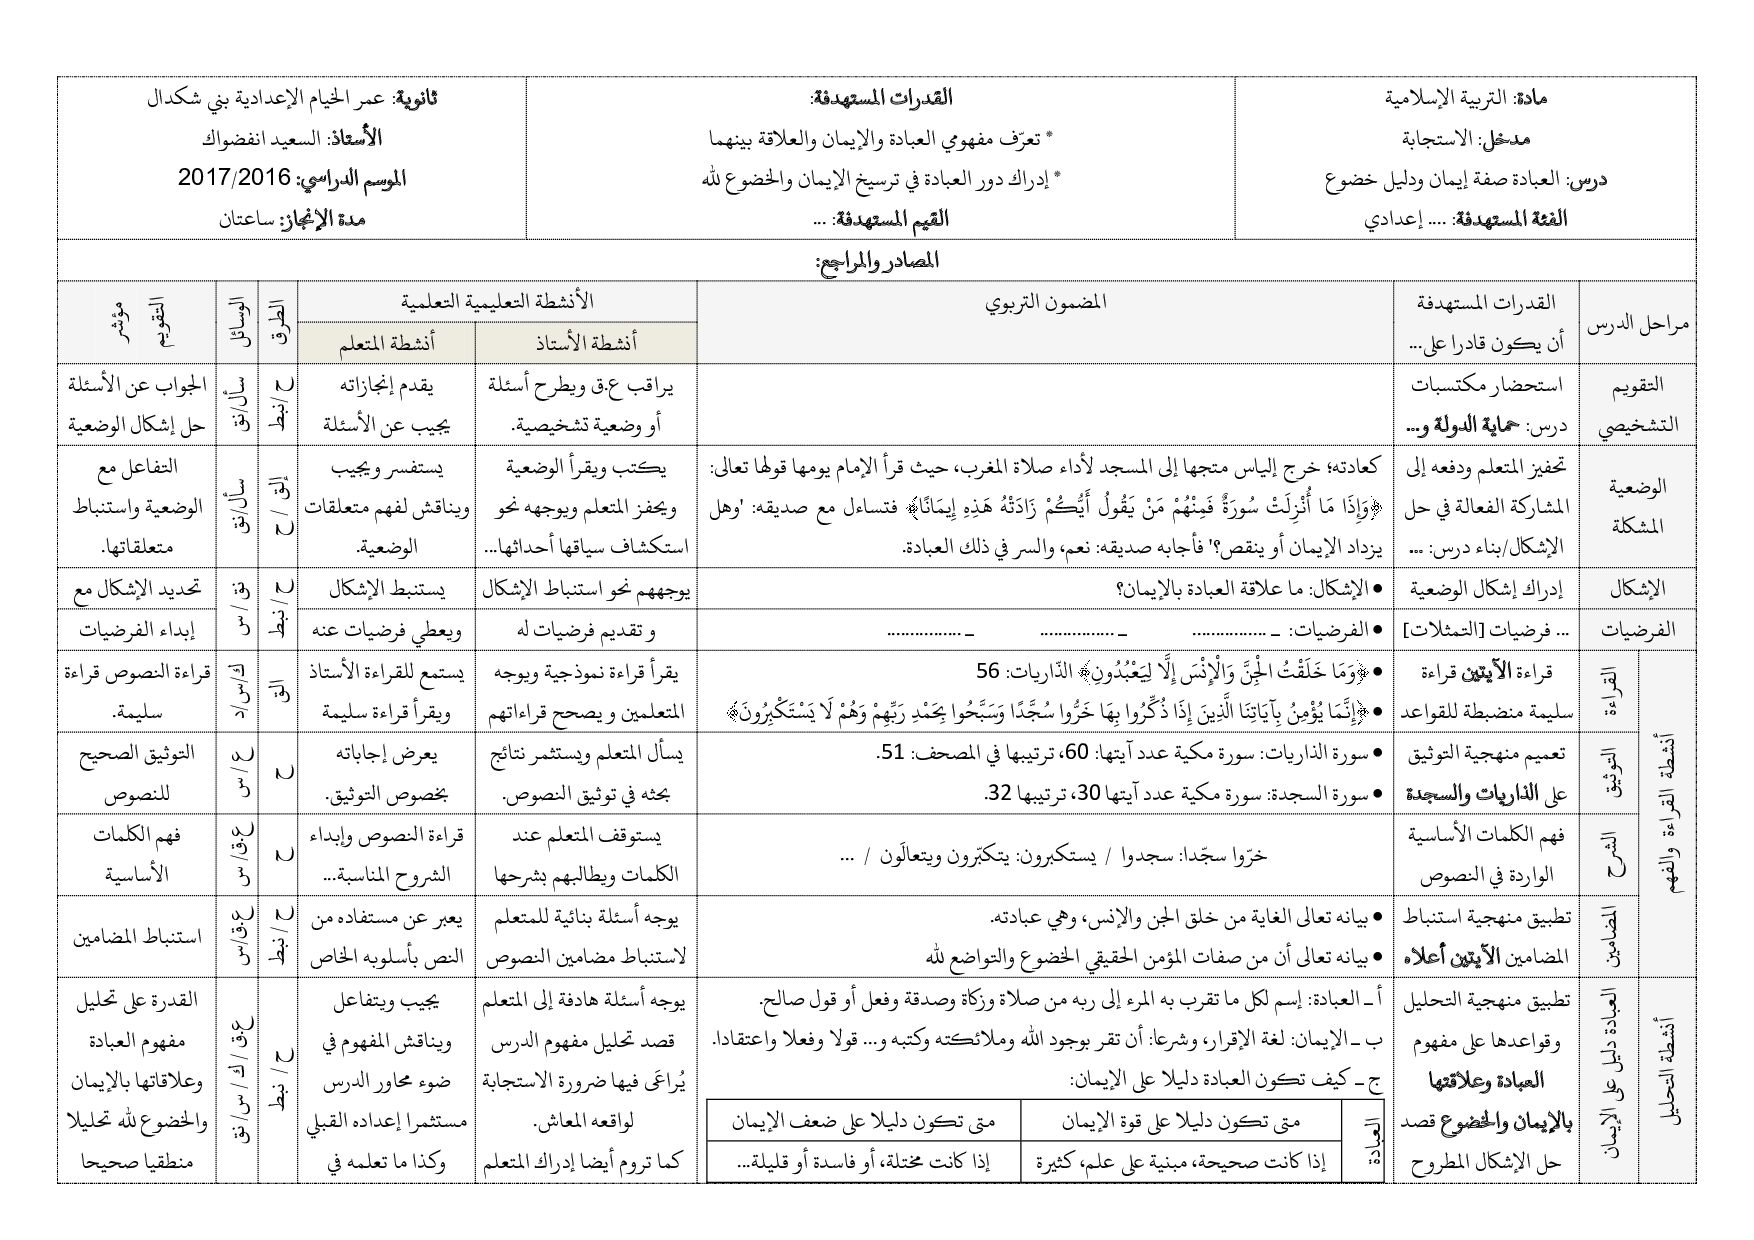 مادة: التربية الإسلامية
مدخل: الاستجابة
درس: العبادة صفة إيمان ودليل خضوع
الفئة المستهدفة: .... إعدادي
القدرات المستهدفة:
* تعرّف مفهومي العبادة والإيمان والعلاقة بينهما
* إدراك دور العبادة في ترسيخ الإيمان والخضوع لله
القيم المستهدفة: ...
ثانوية: عمر الخيام الإعدادية بني شكدال
الأستاذ: السعيد انفضواك
الموسم الدراسي: 2017/2016
مدة الإنجاز: ساعتان
المصادر والمراجع:
مراحل الدرس
القدرات المستهدفة
أن يكون قادرا على...
المضمون التربوي
الأنشطة التعليمية التعلمية
أنشطة الأستاذ
أنشطة المتعلم
الطرق
الوسائل
التقويم
مؤشر
التقويم
التشخيصي
استحضار مكتسبات
درس: حماية الدولة و...
يراقب ع.ق ويطرح أسئلة
أو وضعية تشخيصية.
يقدم إنجازاته
يجيب عن الأسئلة
ح/نبط
سأل/نق
الجواب عن الأسئلة
حل إشكال الوضعية
الوضعية
المشكلة
تحفيز المتعلم ودفعه إلى
المشاركة الفعالة في حل
الإشكال/بناء درس: ...
كعادته؛ خرج إلياس متجها إلى المسجد لأداء صلاة المغرب، حيث قرأ الإمام يومها قولها تعالى:
﴿وَإِذَا مَا أُنْزِلَتْ سُورَةٌ فَمِنْهُمْ مَنْ يَقُولُ أَيُّكُمْ زَادَتْهُ هَذِهِ إِيمَانًا﴾ فتساءل مع صديقه: 'وهل
يزداد الإيمان أو ينقص؟' فأجابه صديقه: نعم، والسر في ذلك العبادة.
يكتب ويقرأ الوضعية
ويحفز المتعلم ويوجهه نحو
استكشاف سياقها أحداثها...
يستفسر ويجيب
ويناقش لفهم متعلقات
الوضعية.
إلق / ح
سأل/نق
التفاعل مع
الوضعية واستنباط
متعلقاتها.
الإشكال
إدراك إشكال الوضعية
• الإشكال: ما علاقة العبادة بالإيمان؟
يوجههم نحو استنباط الإشكال
يستنبط الإشكال
ح / نبط
نق / س
تحديد الإشكال مع
الفرضيات
... فرضيات [التمثلات]
• الفرضيات: ـ ................ ـ ................ ـ ................
و تقديم فرضيات له
ويعطي فرضيات عنه
إبداء الفرضيات
أنشطة القراءة والفهم
القراءة
قراءة الآيتين قراءة
سليمة منضبطة للقواعد
• ﴿وَمَا خَلَقْتُ الْجِنَّ وَالْإِنْسَ إِلَّا لِيَعْبُدُونِ﴾ الذّاريات: 56
• ﴿إِنَّمَا يُؤْمِنُ بِآيَاتِنَا الَّذِينَ إِذَا ذُكِّرُوا بِهَا خَرُّوا سُجَّدًا وَسَبَّحُوا بِحَمْدِ رَبِّهِمْ وَهُمْ لَا يَسْتَكْبِرُونَ﴾
يقرأ قراءة نموذجية ويوجه
المتعلمين و يصحح قراءاتهم
يستمع للقراءة الأستاذ
ويقرأ قراءة سليمة
الق
ك/س/د
قراءة النصوص قراءة
سليمة.
التوثيق
تعميم منهجية التوثيق
على الذاريات والسجدة
• سورة الذاريات: سورة مكية عدد آيتها: 60، ترتيبها في المصحف: 51.
• سورة السجدة: سورة مكية عدد آيتها 30، ترتيبها 32.
يسأل المتعلم ويستثمر نتائج
بحثه في توثيق النصوص.
يعرض إجاباته
بخصوص التوثيق.
ح
ع / س
التوثيق الصحيح
للنصوص
الشرح
فهم الكلمات الأساسية
الواردة في النصوص
خرّوا سجّدا: سجدوا / يستكبرون: يتكبّرون ويتعالَون / ...
يستوقف المتعلم عند
الكلمات ويطالبهم بشرحها
قراءة النصوص وإبداء
الشروح المناسبة...
ح
ع.ق/ س
فهم الكلمات
الأساسية
المضامين
تطبيق منهجية استنباط
المضامين الآيتين أعلاه
• بيانه تعالى الغاية من خلق الجن والإنس، وهي عبادته.
• بيانه تعالى أن من صفات المؤمن الحقيقي الخضوع والتواضع لله
يوجه أسئلة بنائية للمتعلم
لاستنباط مضامين النصوص
يعبر عن مستفاده من
النص بأسلوبه الخاص
ح / نبط
ع.ق/س
استنباط المضامين
أنشطة التحليل
العبادة دليل على الإيمان
تطبيق منهجية التحليل
وقواعدها على مفهوم
العبادة وعلاقتها
بالإيمان والخضوع قصد
حل الإشكال المطروح
أ ـ العبادة: إسم لكل ما تقرب به المرء إلى ربه من صلاة وزكاة وصدقة وفعل أو قول صالح.
ب ـ الإيمان: لغة الإقرار، وشرعا: أن تقر بوجود الله وملائكته وكتبه و... قولا وفعلا واعتقادا.
ج ـ كيف تكون العبادة دليلا على الإيمان:
العبادة
متى تكون دليلا على قوة الإيمان
متى تكون دليلا على ضعف الإيمان
إذا كانت صحيحة، مبنية على علم، كثيرة
إذا كانت مختلة، أو فاسدة أو قليلة...
يوجه أسئلة هادفة إلى المتعلم
قصد تحليل مفهوم الدرس
يُراعَى فيها ضرورة الاستجابة
لواقعه المعاش.
كما تروم أيضا إدراك المتعلم
يجيب ويتفاعل
ويناقش المفهوم في
ضوء محاور الدرس
مستثمرا إعداده القبلي
وكذا ما تعلمه في
ح / نبط
ع.ق / ك / س/ نق
القدرة على تحليل
مفهوم العبادة
وعلاقاتها بالإيمان
والخضوع لله تحليلا
منطقيا صحيحا